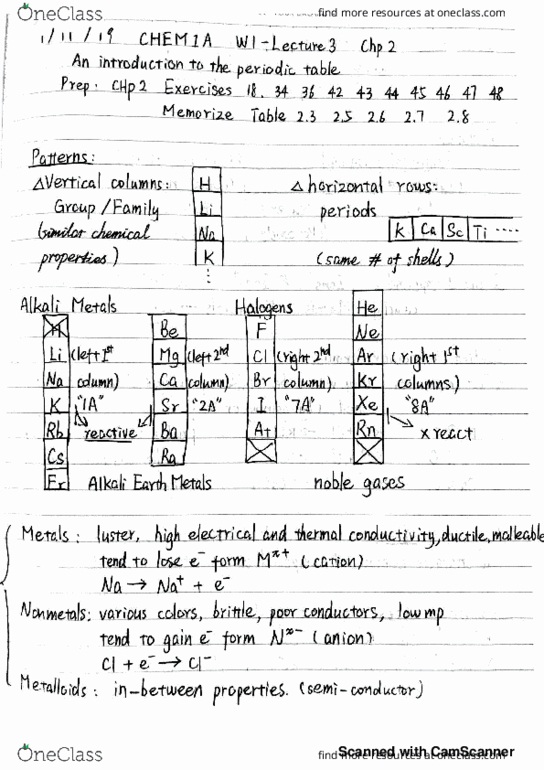 OneClass
find more resources at oneclass.com
1/11/19 CHEM1A W1-Lecture3 Chp 2
An introduction to the periodic table
Prep: CHp2 Exercises 18. 34 36 42 43 44 45 46 47 48
Memorize Table 2.3 2.5 2.6 2.7 2.8
Patterns:
△Vertical columns:
Group/Family
(similar chemical
properties)
H
Li
Na
K
⋮
△horizontal rows:
periods
K Ca Sc Ti ····
(same # of shells)
Alkali Metals
H
Li (left 1st
Na column)
K "1A"
Rb reactive
Cs
Fr
Be
Mg (left 2nd
Ca column)
Sr "2A"
Ba
Ra
Alkali Earth Metals
Halogens
F
Cl (right 2nd
Br column)
I "7A"
At
He
Ne
Ar (right 1st
Kr columns)
Xe "8A"
Rn x react
noble gases
Metals: luster, high electrical and thermal conductivity, ductile, malleable
tend to lose e⁻ form Mˣ⁺ (cation)
Na → Na⁺ + e⁻
Nonmetals: various colors, brittle, poor conductors, low mp
tend to gain e⁻ form Nˣ⁻ (anion)
Cl + e⁻ → Cl⁻
Metalloids: in-between properties. (semi-conductor)
OneClass
find more resources at oneclass.com
Scanned with CamScanner